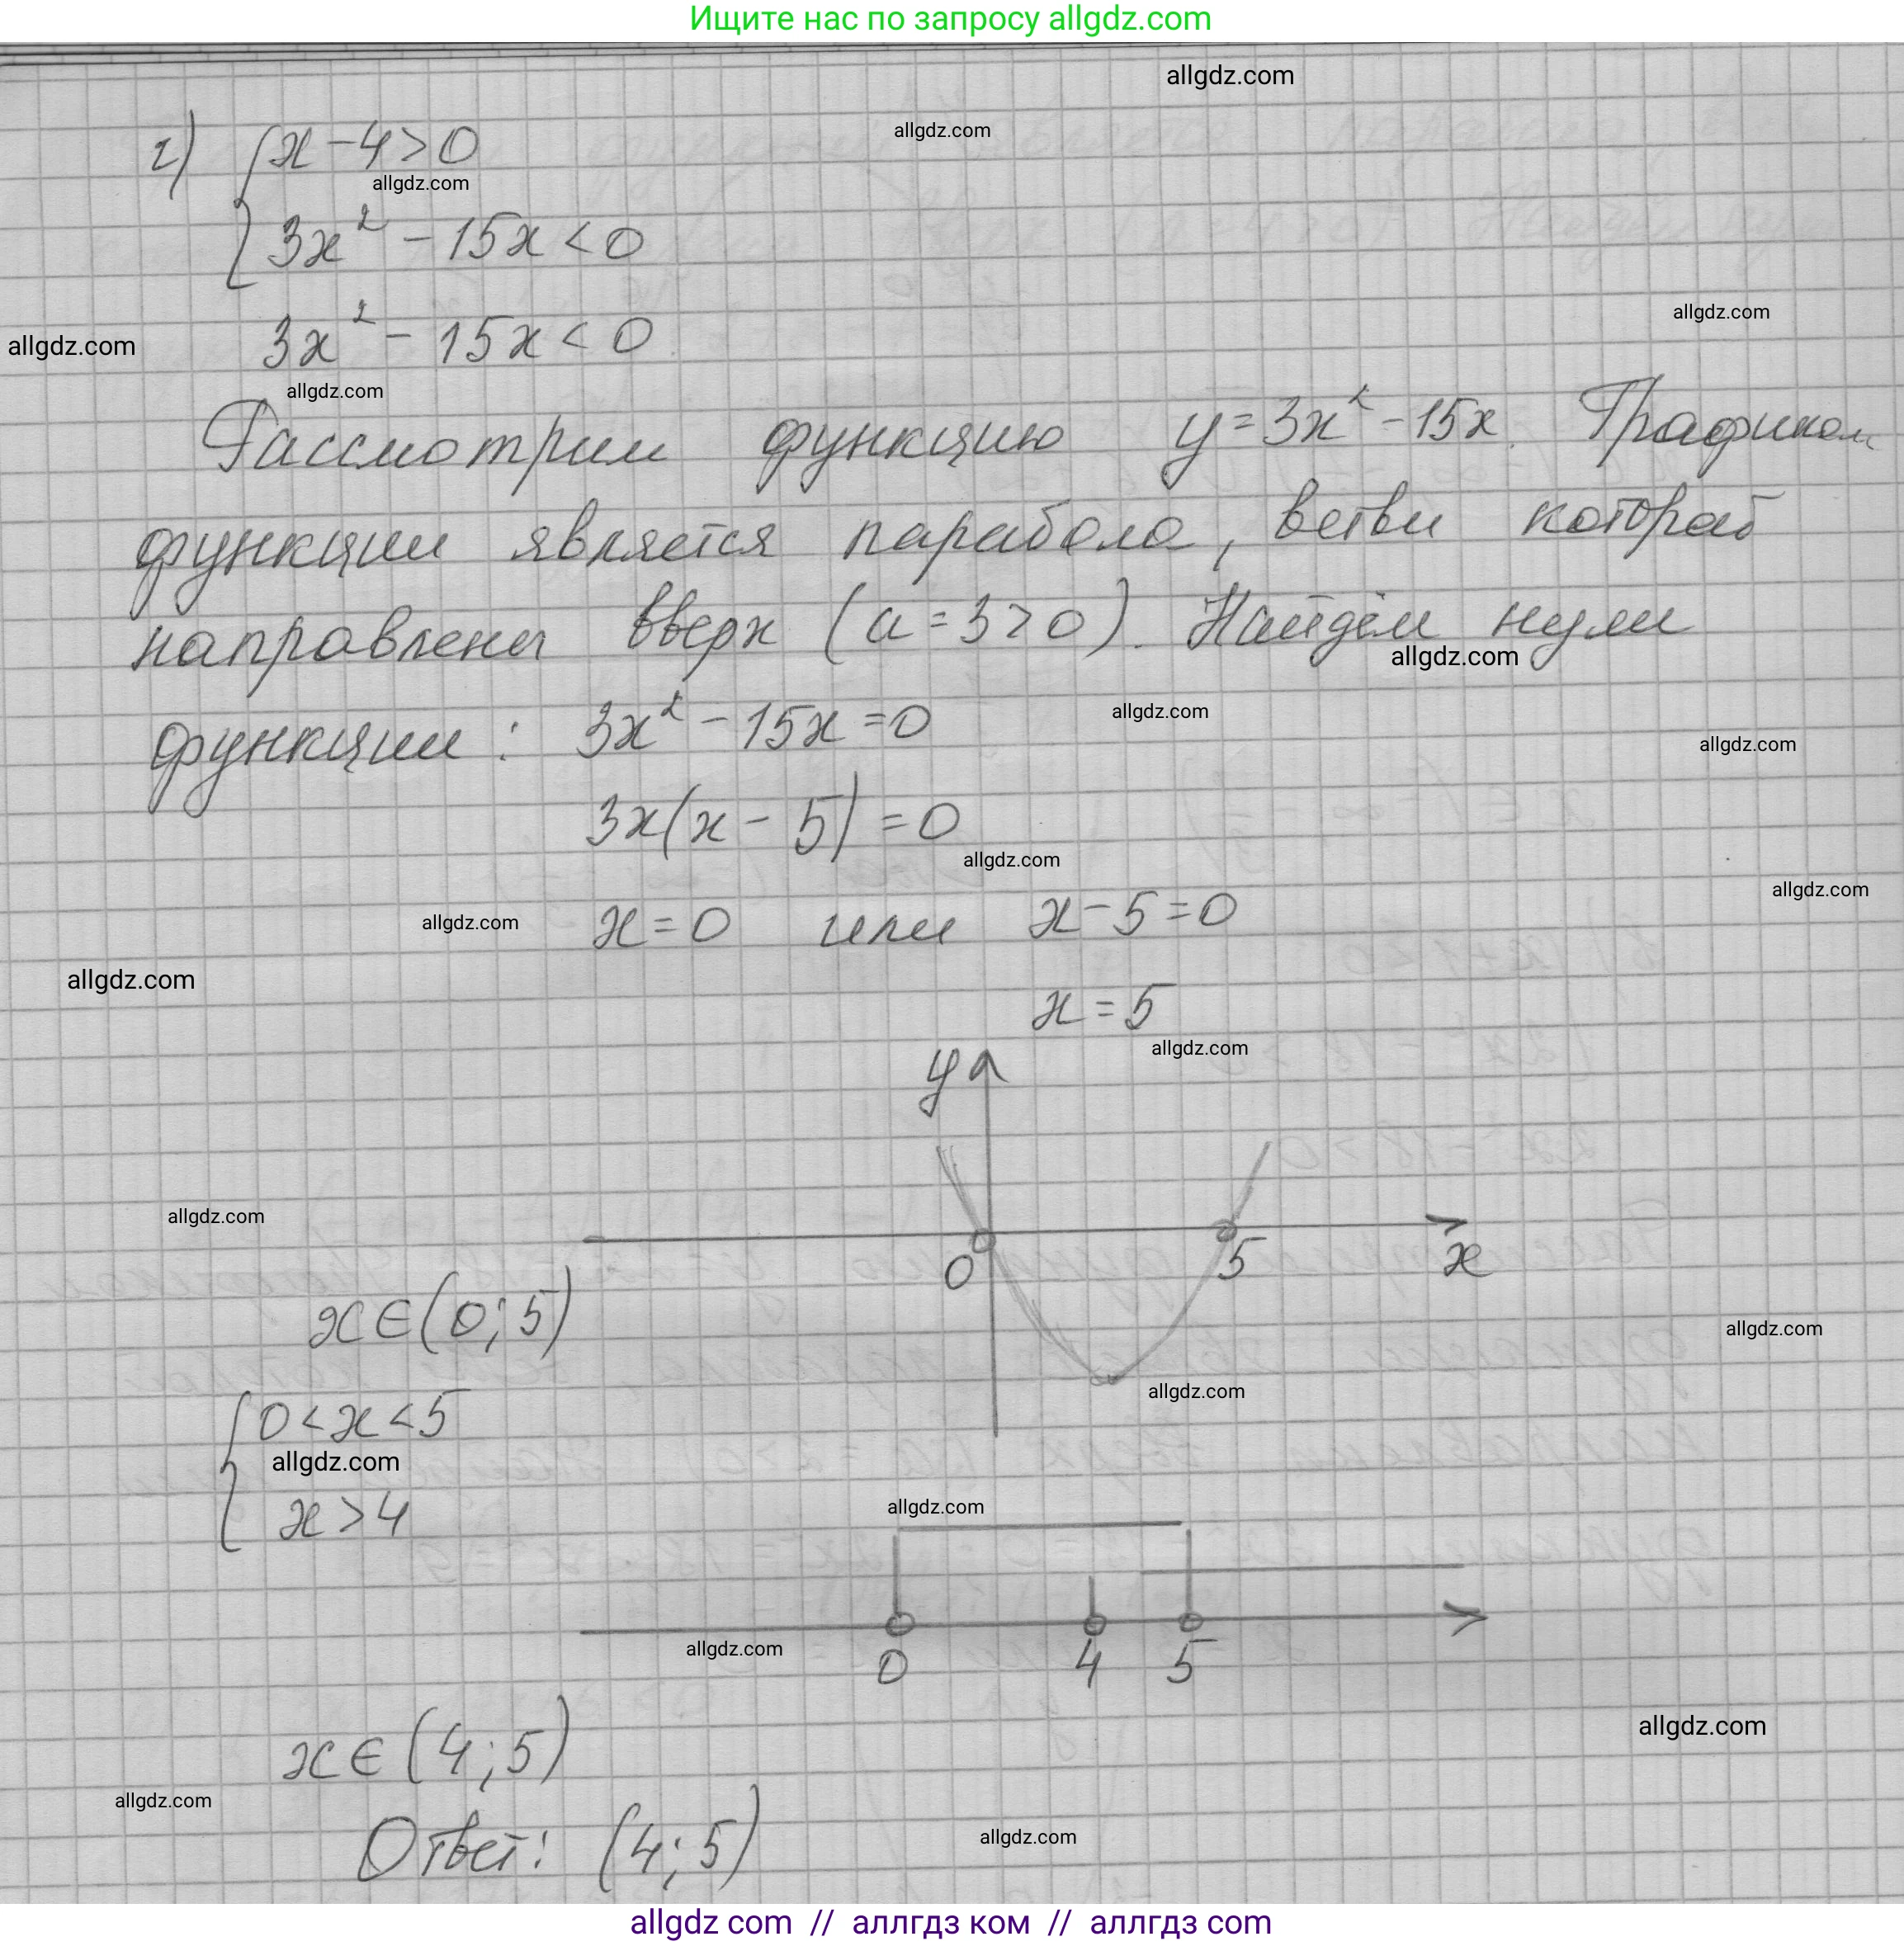 Ищите нас по запросу allgdz.com
allgdz.com
allgdz.com
г) { x - 4 > 0
allgdz.com
3x² - 15x < 0
allgdz.com
3x² - 15x < 0
allgdz.com
allgdz.com
Рассмотрим функцию y = 3x² - 15x. Графиком
функции является парабола, ветви которой
направлены вверх (a = 3 > 0). Найдём нули
allgdz.com
функции: 3x² - 15x = 0
allgdz.com
allgdz.com
3x(x - 5) = 0
allgdz.com
allgdz.com
x = 0 или x - 5 = 0
allgdz.com
allgdz.com
x = 5
allgdz.com
y
allgdz.com
0 5 x
x ∈ (0; 5)
allgdz.com
allgdz.com
{ 0 < x < 5
allgdz.com
x > 4
allgdz.com
allgdz.com
0 4 5
allgdz.com
x ∈ (4; 5)
allgdz.com
Ответ: (4; 5)
allgdz.com
allgdz com // аллгдз ком // аллгдз com